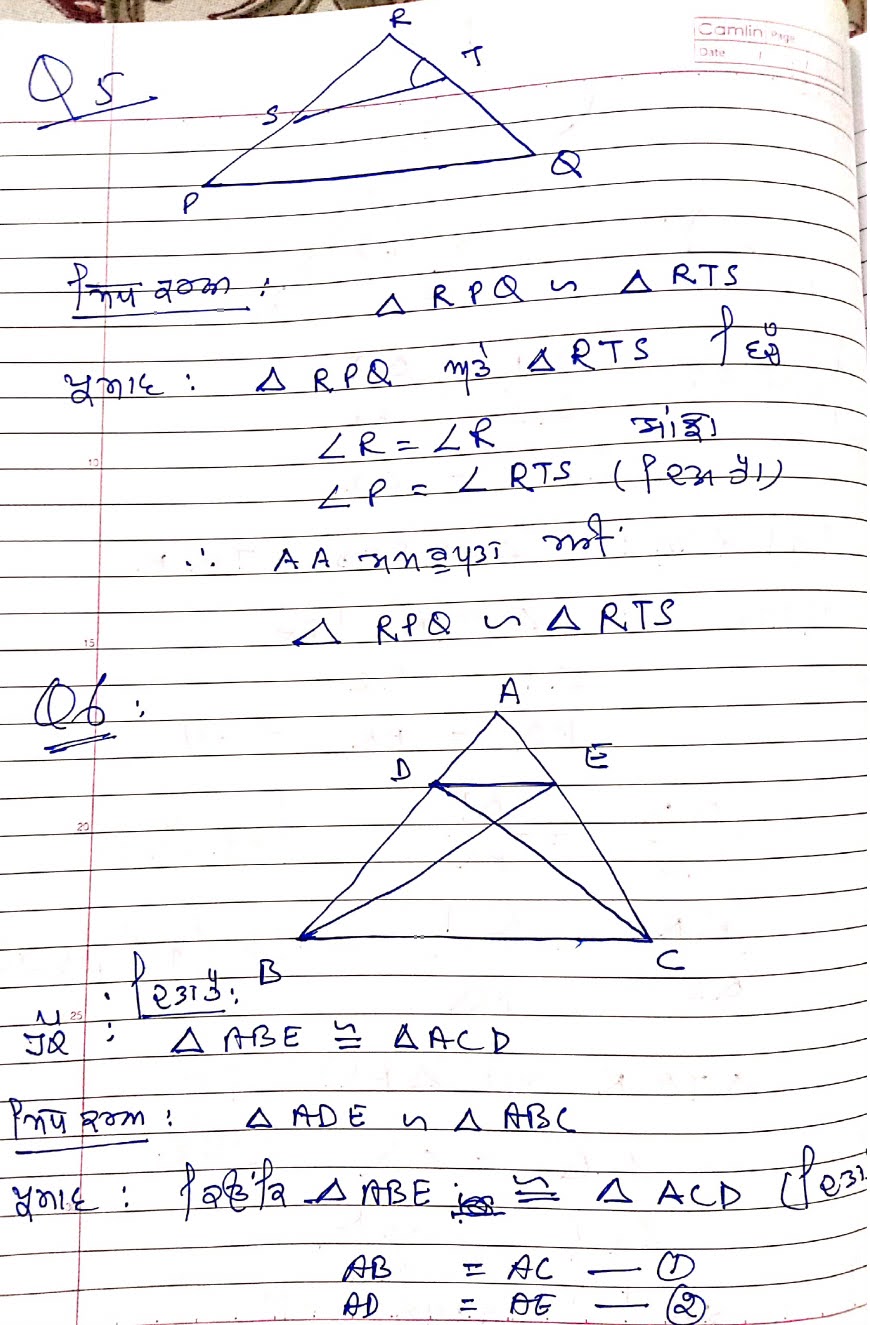 Camlin Page
Date / /
Q 5
R
T
S
P
Q
ਸਿੱਧ ਕਰਨਾ :
△ RPQ ∽ △ RTS
ਪ੍ਰਮਾਣ : △ RPQ ਅਤੇ △ RTS ਵਿੱਚ
∠R = ∠R ਸਾਂਝਾ
∠P = ∠RTS (ਦਿੱਤਾ ਹੈ)
∴ AA ਸਮਰੂਪਤਾ ਰਾਹੀਂ
△ RPQ ∽ △ RTS
10
15
Q6 :
A
D
E
20
B
C
ਦਿੱਤਾ ਹੈ :
25
: △ ABE ≅ △ ACD
ਸਿੱਧ ਕਰਨਾ : △ ADE ∽ △ ABC
ਪ੍ਰਮਾਣ : ਕਿਉਂਕਿ △ ABE ≅ △ ACD
AB = AC — ①
AD = AE — ②